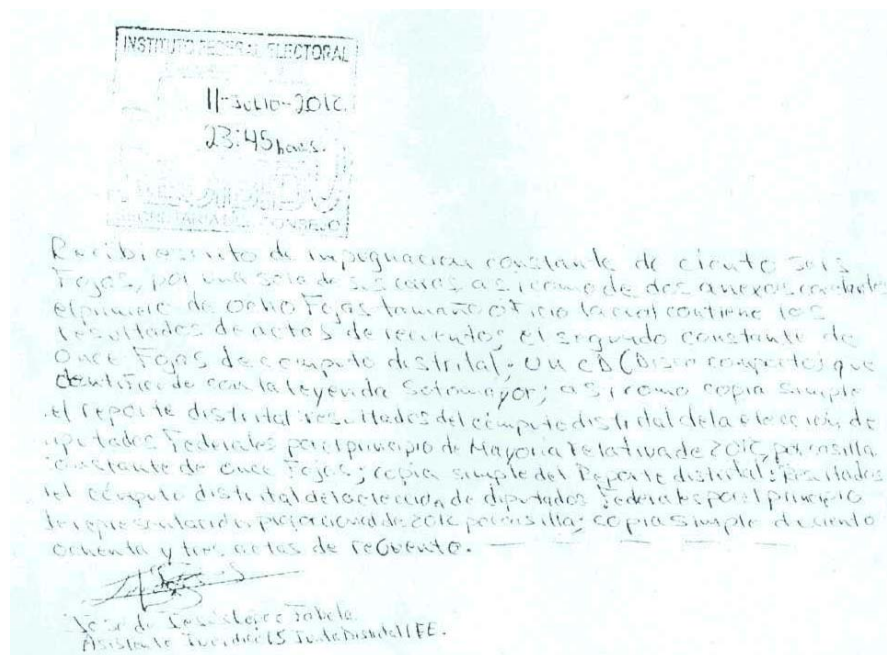 INSTITUTO FEDERAL ELECTORAL
11-JULIO-2012.
23:45 horas.
CONSEJO
Recibi escrito de impugnacion constante de ciento seis
Fojas, por una sola de sus caras, asi como de dos anexos constantes
el primero de ocho Fojas tamaño oficio la cual contiene los
resultados de actas de recuento; el segundo constante de
once Fojas de computo distrital; un CD (Disco compacto) que
identifico con la leyenda Sotomayor; asi como copia simple
el reporte distrital: resultados del cómputo distrital de la elección de
iputados Federales por el principio de Mayoria Relativa de 2012, por casilla
constante de once Fojas; copia simple del Reporte distrital: Resultados
del cómputo distrital de la elección de diputados Federales por el principio
de representación proporcional de 2012 por casilla; copia simple de ciento
ochenta y tres actas de recuento.
José de Jesús López
Asistente Juridico 15 Junta Distrital IFE.